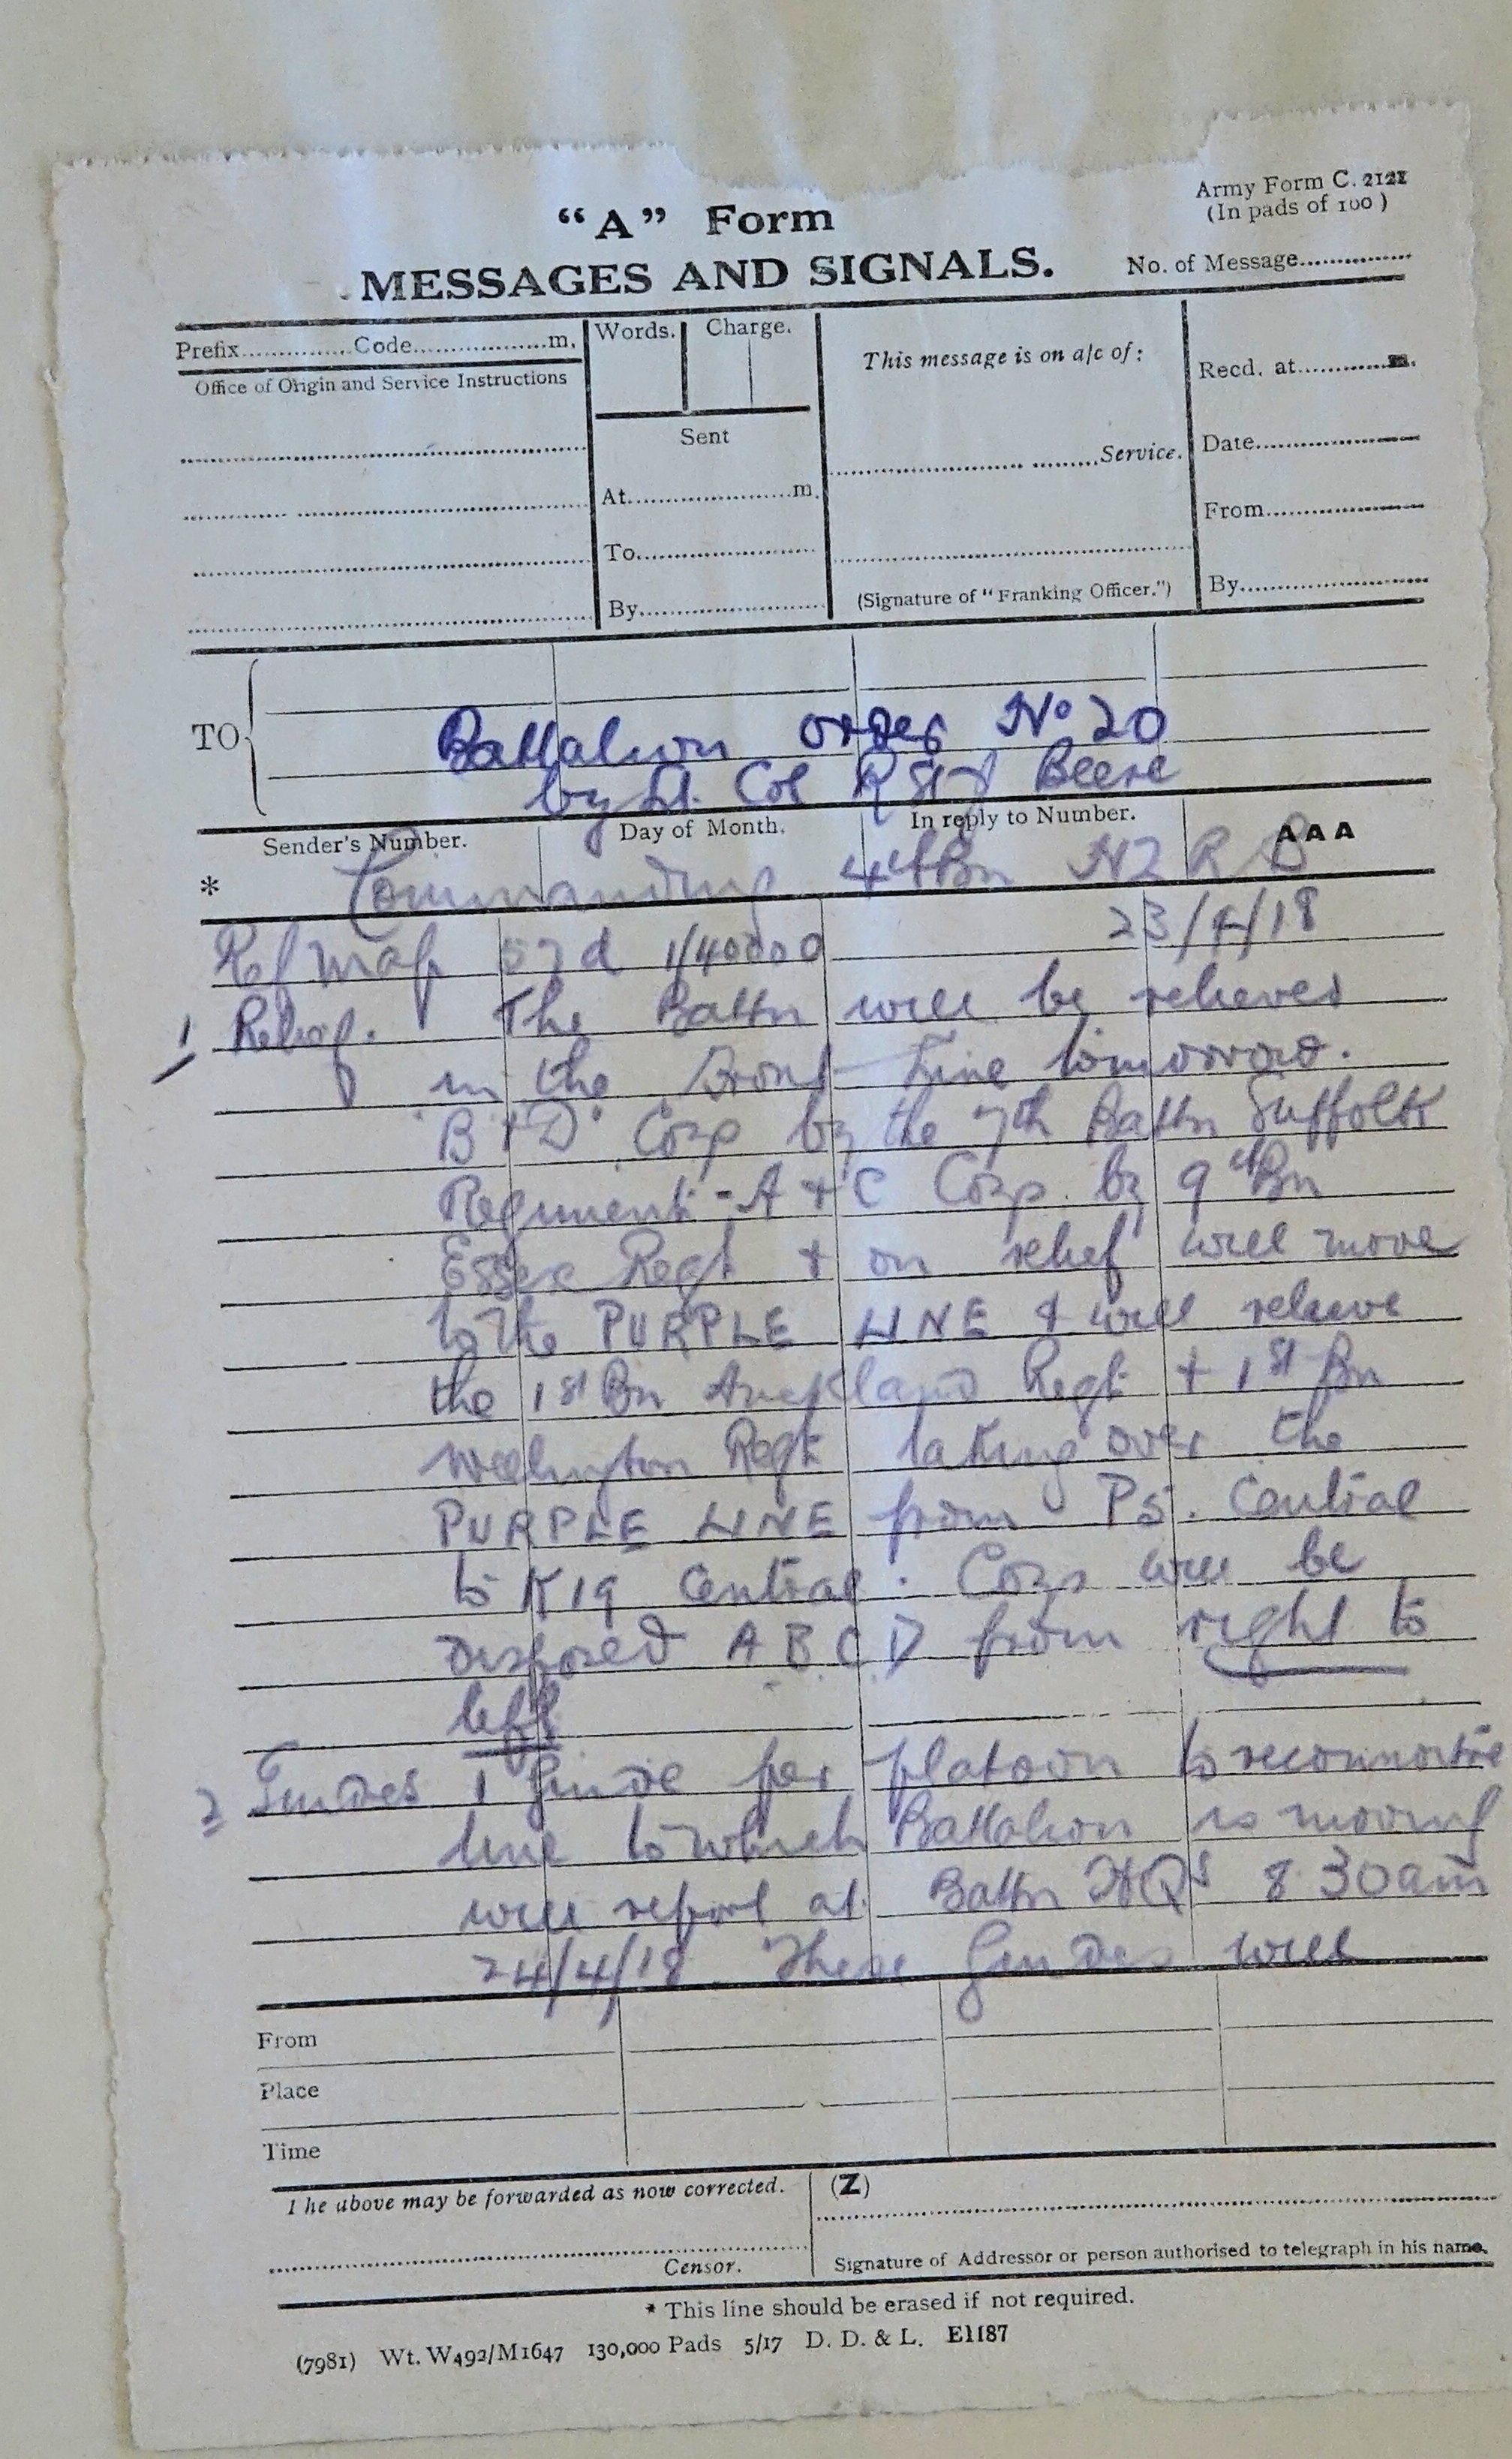 "A" Form
Army Form C. 2121
(In pads of 100)
MESSAGES AND SIGNALS.
No. of Message
Prefix Code m.
Words. Charge.
This message is on a/c of:
Recd. at m.
Office of Origin and Service Instructions
Sent
Service.
Date
At m.
From
To
By
(Signature of "Franking Officer.")
By
TO
Battalion order No 20
by Lt. Col R St J Beere
Sender's Number. Day of Month. In reply to Number. AAA
* Commanding 4th Bn NZ R B
23/4/18
Ref Map 57d 1/40000
1 Relief. The Battn will be relieved
in the Front Line tomorrow.
B & D Coys by the 7th Battn Suffolk
Regiment - A & C Coys. by 9th Bn
Essex Regt & on relief will move
to the PURPLE LINE & will relieve
the 1st Bn Auckland Regt & 1st Bn
Wellington Regt taking over the
PURPLE LINE from P5. Central
to K19 Central. Coys will be
disposed A B C D from right to
left
2 Guides 1 Guide per platoon to reconnoitre
line to which Battalion is moving
will report at Battn HQs 8.30am
24/4/18. These Guides will
From
Place
Time
The above may be forwarded as now corrected.
(Z)
Censor.
Signature of Addressor or person authorised to telegraph in his name.
* This line should be erased if not required.
(7981) Wt. W492/M1647 130,000 Pads 5/17 D. D. & L. E1187